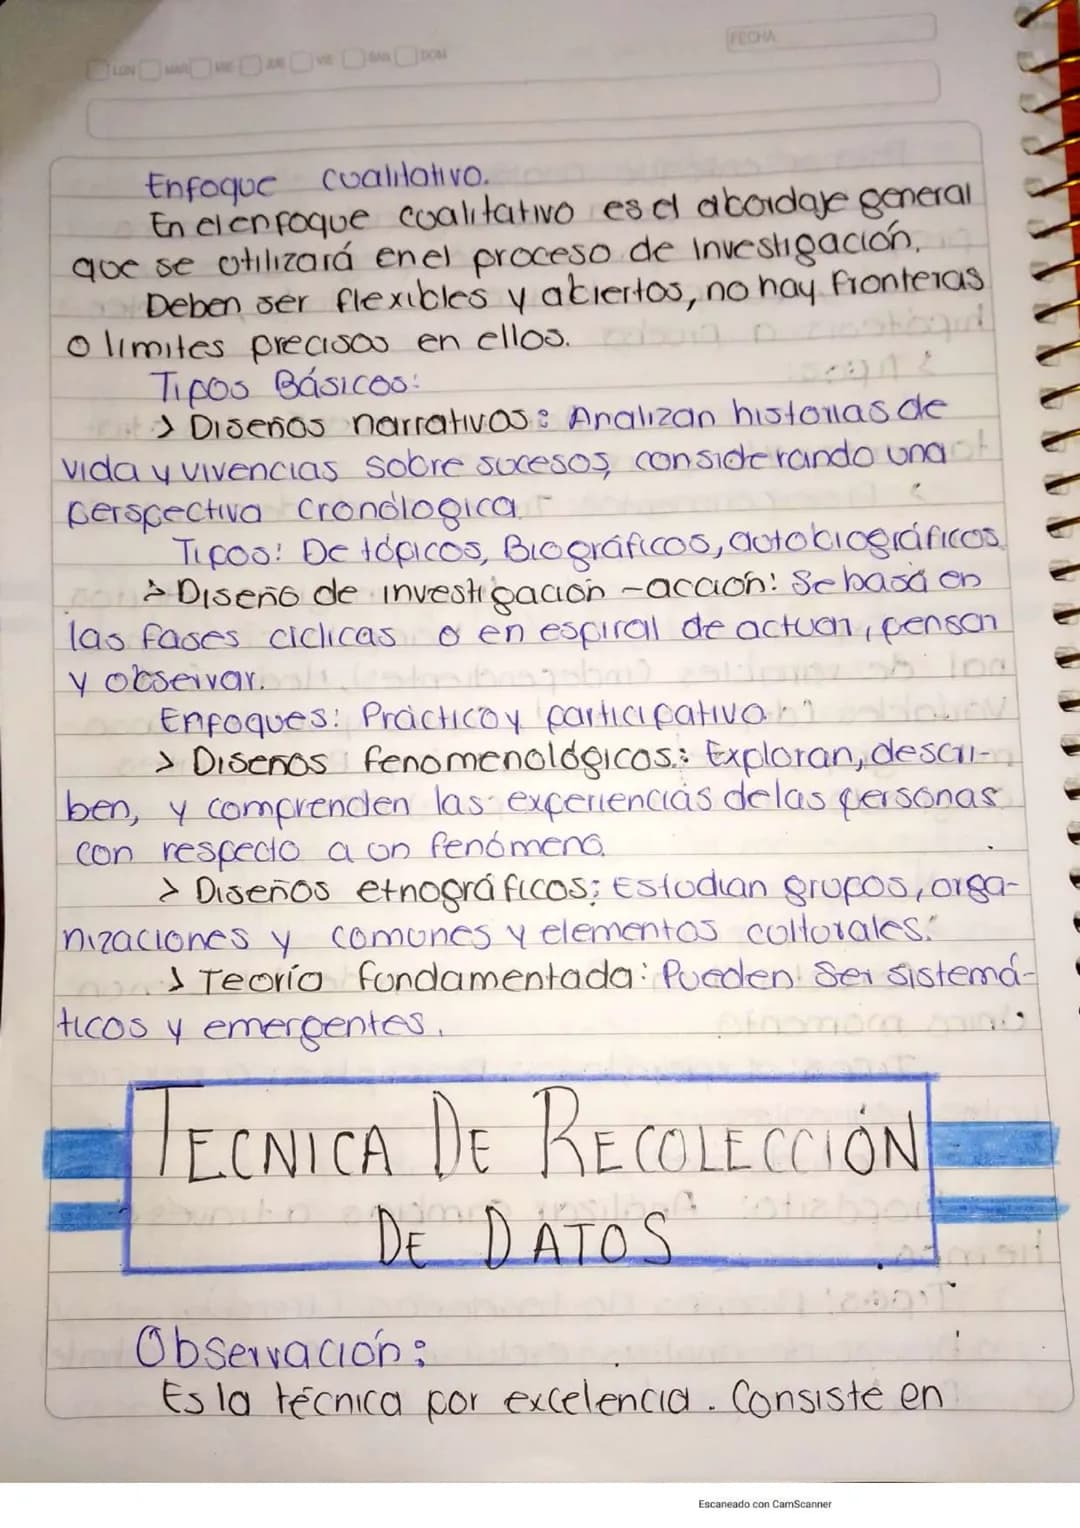 FECHA
LUN MAR MIE JUE VIE SAB DOM
Enfoque cualitativo.
En el enfoque cualitativo es el abordaje general
que se utilizará en el proceso de Investigación.
Deben ser flexibles y abiertos, no hay fronteras
o limites precisos en ellos.
Tipos Básicos:
> Diseños narrativos: Analizan historias de
vida y vivencias sobre sucesos, considerando una
perspectiva cronólogica.
Tipos: De tópicos, Biográficos, autobiográficos
> Diseño de investigación -acción: Se basa en
las fases ciclicas o en espiral de actuar, pensar
y observar.
Enfoques: Práctico y participativo
> Diseños fenomenológicos: Exploran, descri-
ben, y comprenden las experiencias de las personas
con respecto a un fenómeno.
> Diseños etnográficos: Estudian grupos, orga-
nizaciones y comunes y elementos culturales.
> Teoría fundamentada: Pueden Ser sistemá-
ticos y emergentes.
TECNICA DE RECOLECCIÓN
DE DATOS
Observación:
Es la técnica por excelencia. Consiste en
Escaneado con CamScanner